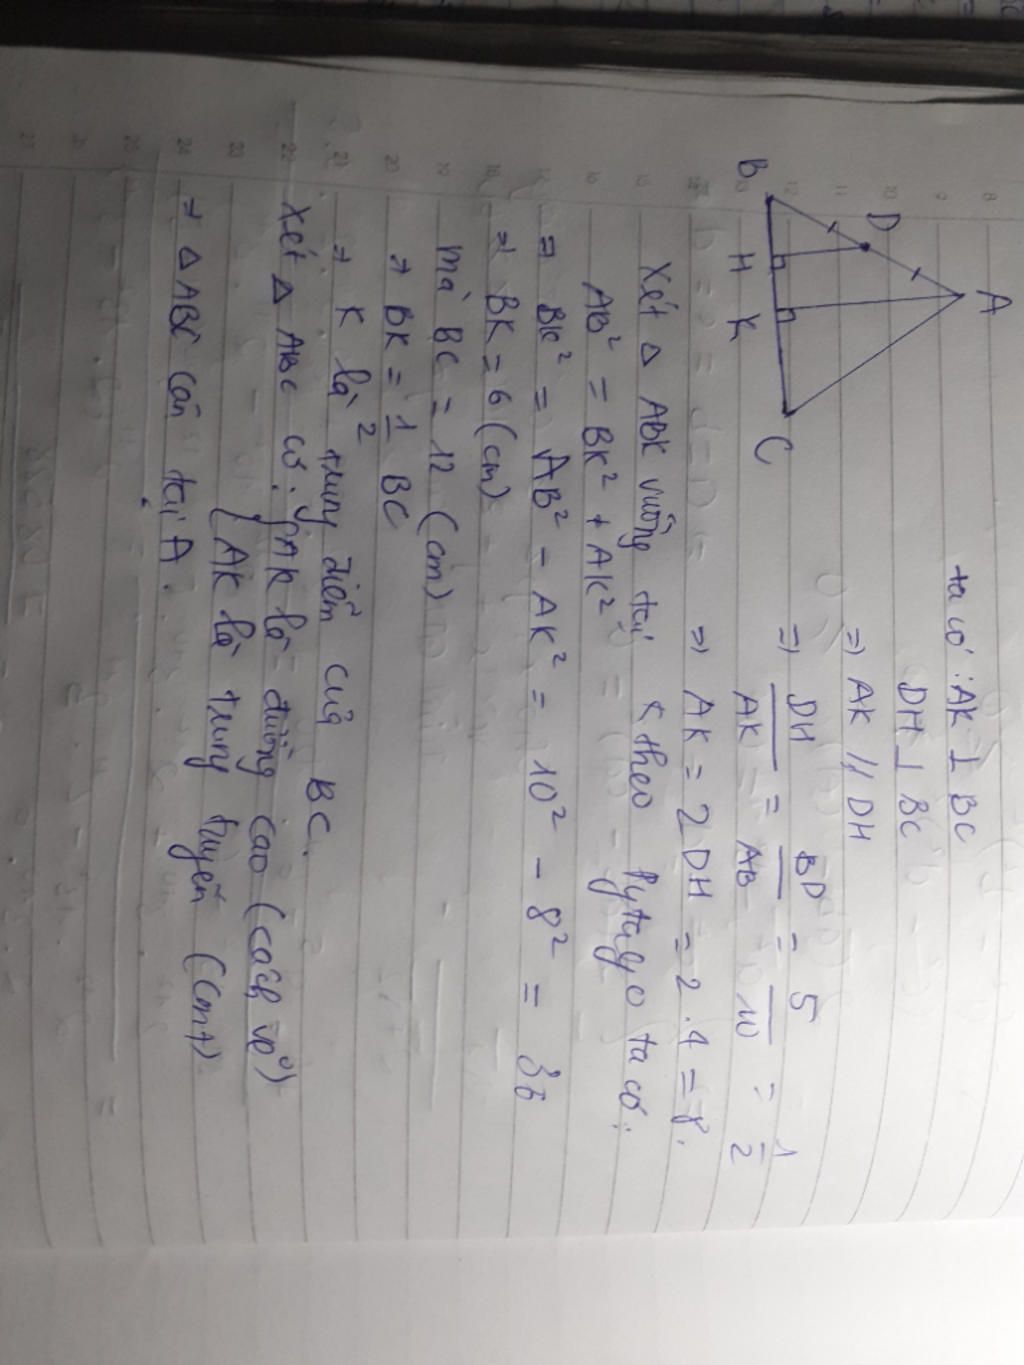 A
D
B
H
K
C
ta có : AK ⊥ BC
DH ⊥ BC
=) AK // DH
=) DH/AK = BD/AB = 5/10 = 1/2
=) AK = 2DH = 2.4 = 8.
Xét Δ ABK vuông tại K theo Pytago ta có:
AB² = BK² + AK²
=) BK² = AB² - AK² = 10² - 8² = 36
=) BK = 6 (cm)
mà BC = 12 (cm)
=) BK = 1/2 BC
=) K là trung điểm của BC.
Xét Δ ABC có: { AK là đường cao (cách vẽ)
{ AK là trung tuyến (cmt)
=) Δ ABC cân tại A.